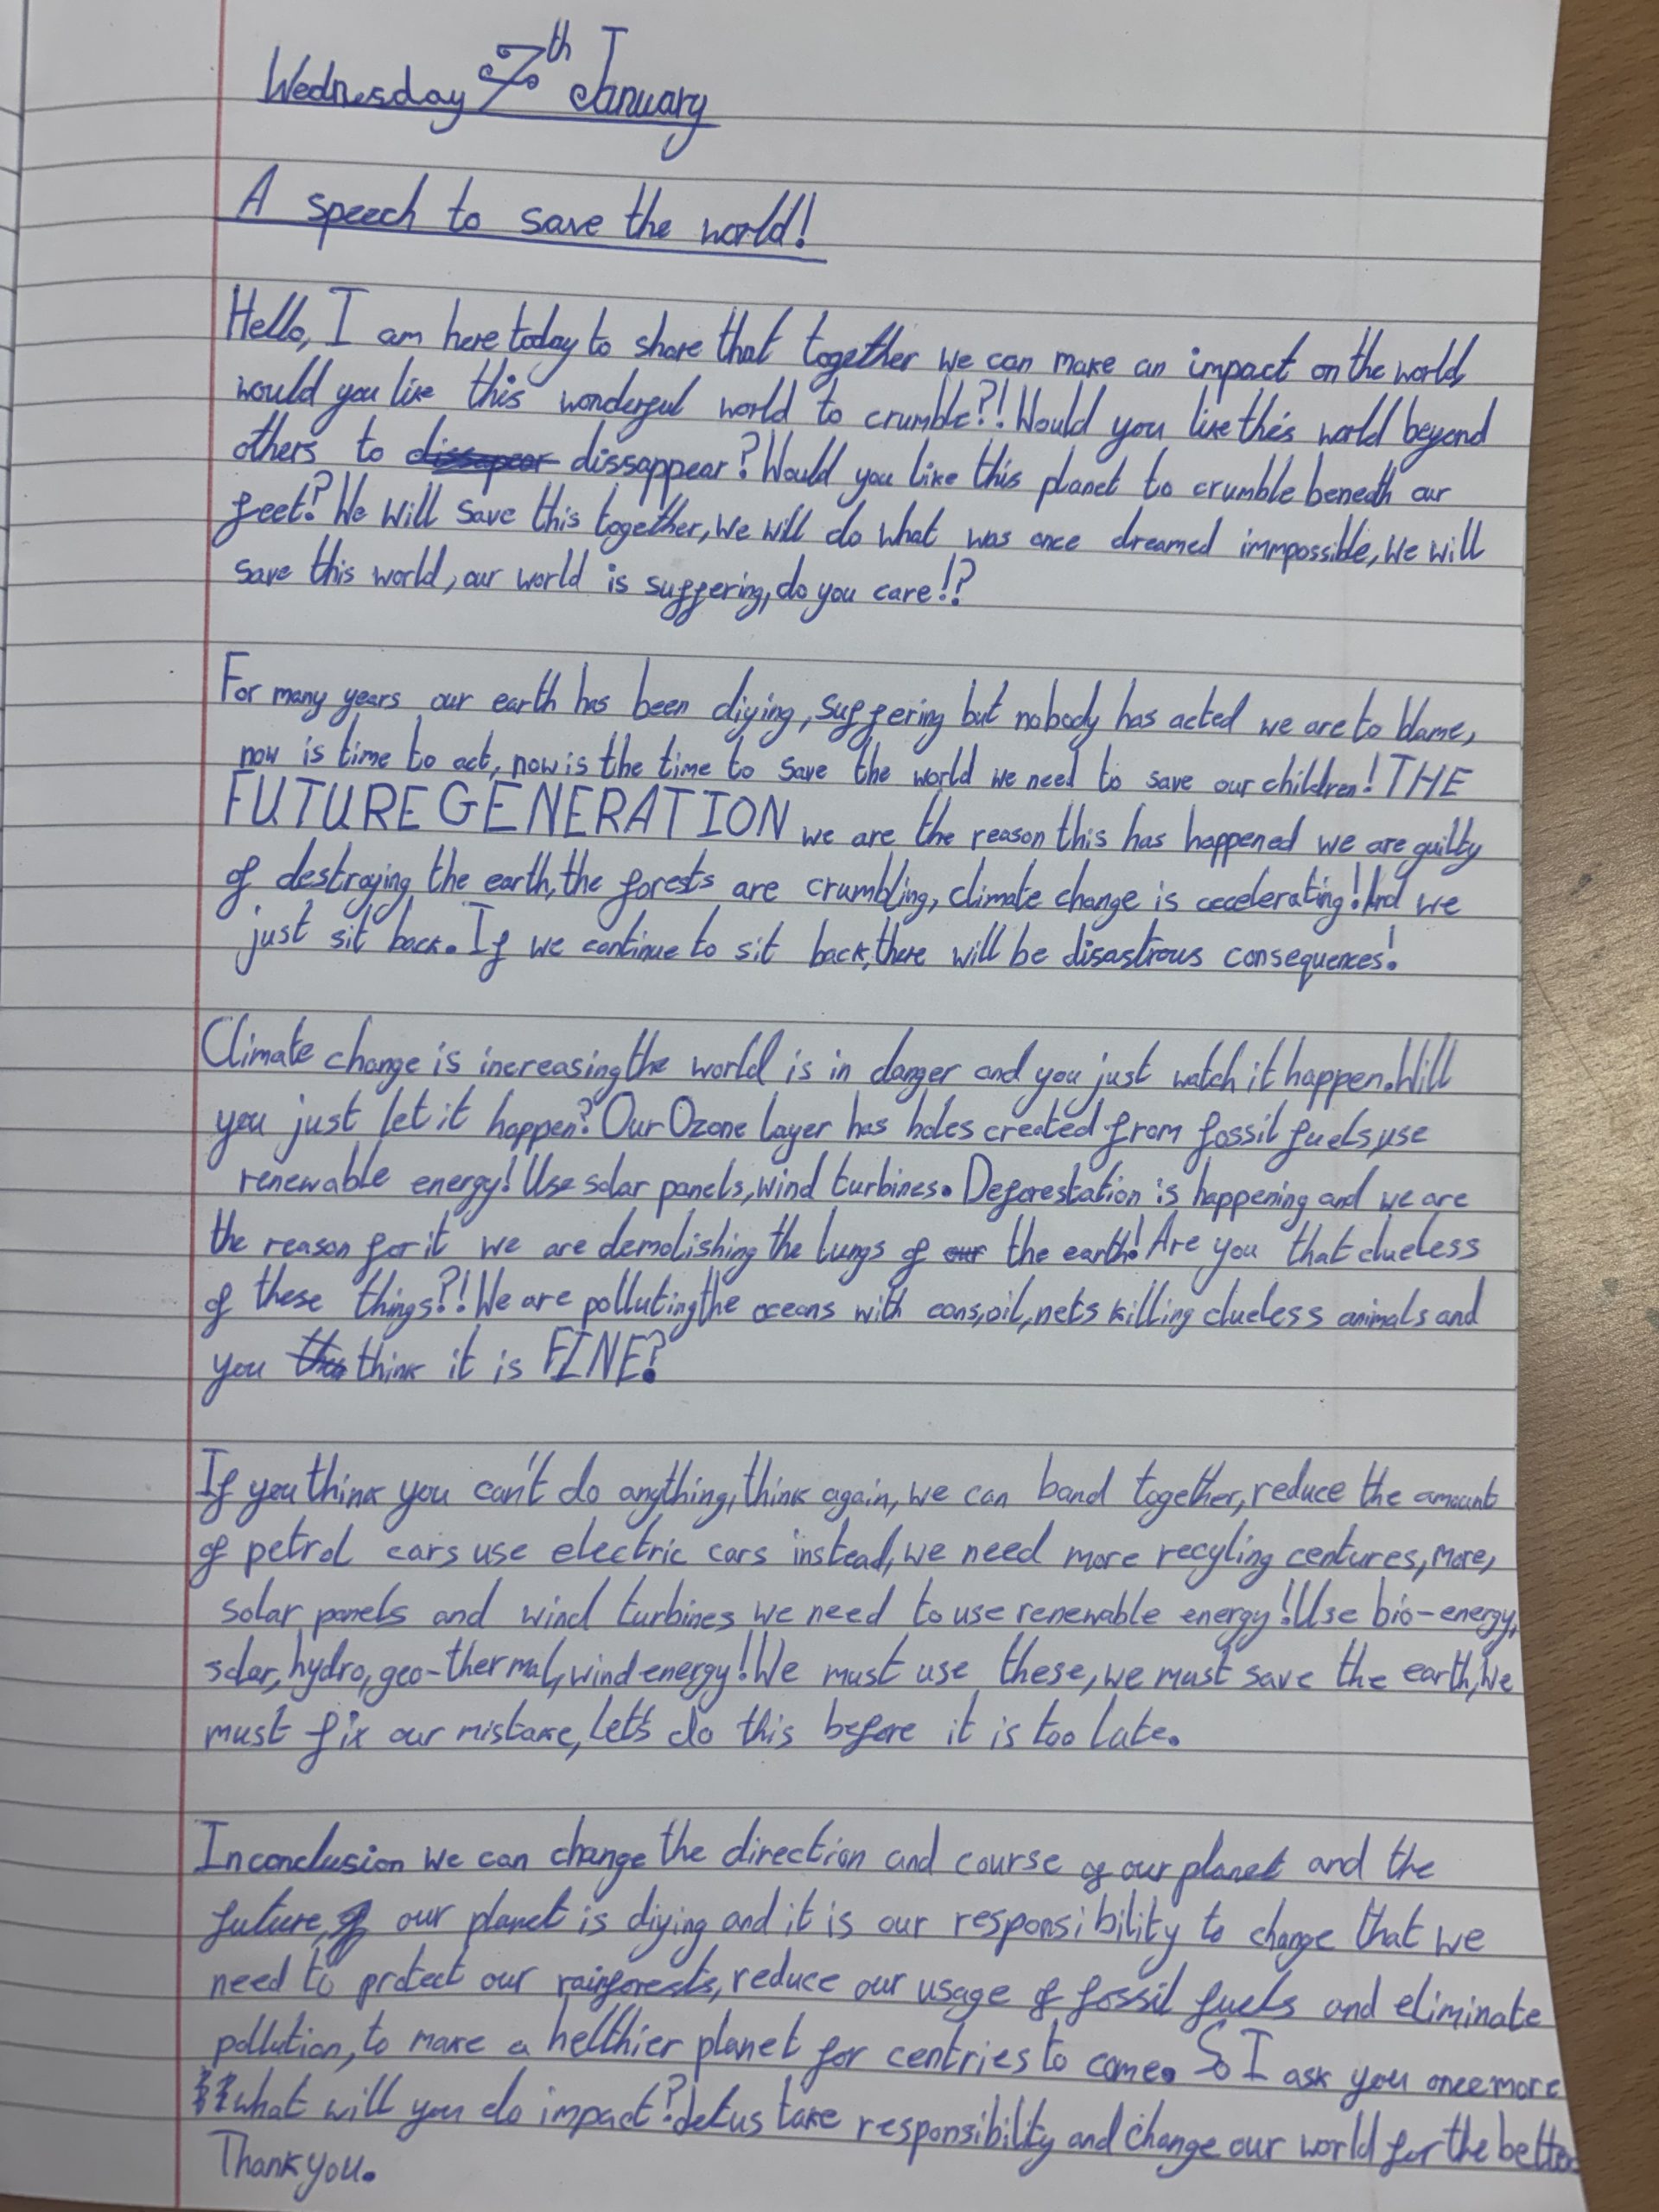 Wednesday 7th January
A speech to save the world!
Hello, I am here today to share that together we can make an impact on the world,
would you like this wonderful world to crumble?! Would you like this world beyond
others to dissapear dissappear? Would you like this planet to crumble beneath our
feet? We will save this together, we will do what was once dreamed immpossible, we will
save this world, our world is suffering, do you care!?
For many years our earth has been diying, suffering but nobody has acted we are to blame,
now is time to act, now is the time to save the world we need to save our children! THE
FUTURE GENERATION we are the reason this has happened we are guilty
of destroying the earth, the forests are crumbling, climate change is accelerating! And we
just sit back. If we continue to sit back, there will be disastrous consequences!
Climate change is increasing the world is in danger and you just watch it happen. Will
you just let it happen? Our Ozone layer has holes created from fossil fuels, use
renewable energy! Use solar panels, wind turbines. Deforestation is happening and we are
the reason for it we are demolishing the lungs of our the earth! Are you that clueless
of these things?! We are polluting the oceans with cans, oil, nets killing clueless animals and
you think it is FINE?
If you think you can't do anything, think again, we can band together, reduce the amount
of petrol cars use electric cars instead, we need more recyling centures, more,
solar panels and wind turbines we need to use renewable energy! Use bio-energy,
solar, hydro, geo-thermal, wind energy! We must use these, we must save the earth, we
must fix our mistake, let's do this before it is too late.
In conclusion we can change the direction and course of our planet and the
future, our planet is diying and it is our responsibility to change that we
need to protect our rainforests, reduce our usage of fossil fuels and eliminate
pollution, to make a helthier planet for centries to come. So I ask you once more
what will you do impact? Let us take responsibility and change our world for the better.
Thank you.